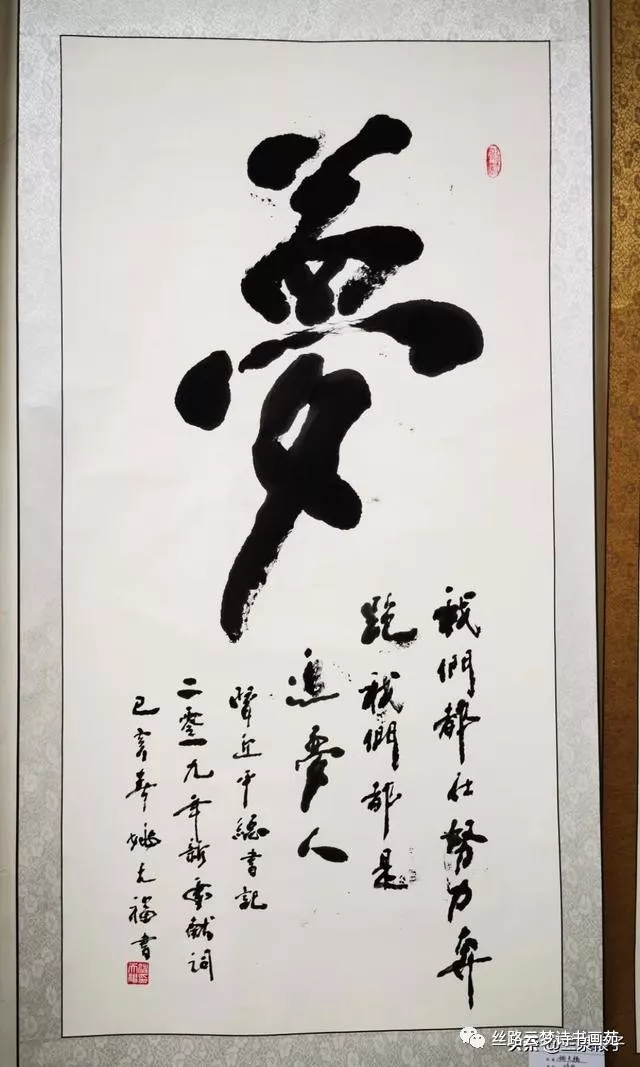 夢
我們都在努力奔
跑我們都是
追夢人
習近平總書記
二零一九年新年獻詞
己亥春姚天福書
丝路云梦诗书画苑